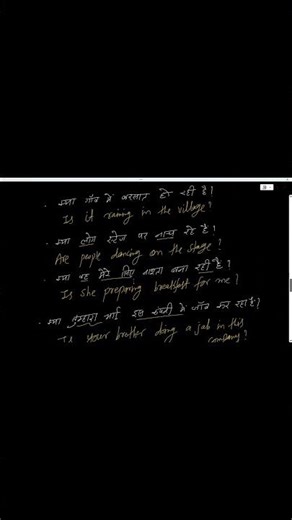 क्या गाँव में बरसात हो रही है?
Is it raining in the village?
क्या लोग स्टेज पर नाच रहे हैं?
Are people dancing on the stage?
क्या वह मेरे लिए नाश्ता बना रही है?
Is she preparing breakfast for me?
क्या तुम्हारा भाई इस कंपनी में जॉब कर रहा है?
Is your brother doing a job in this
company?